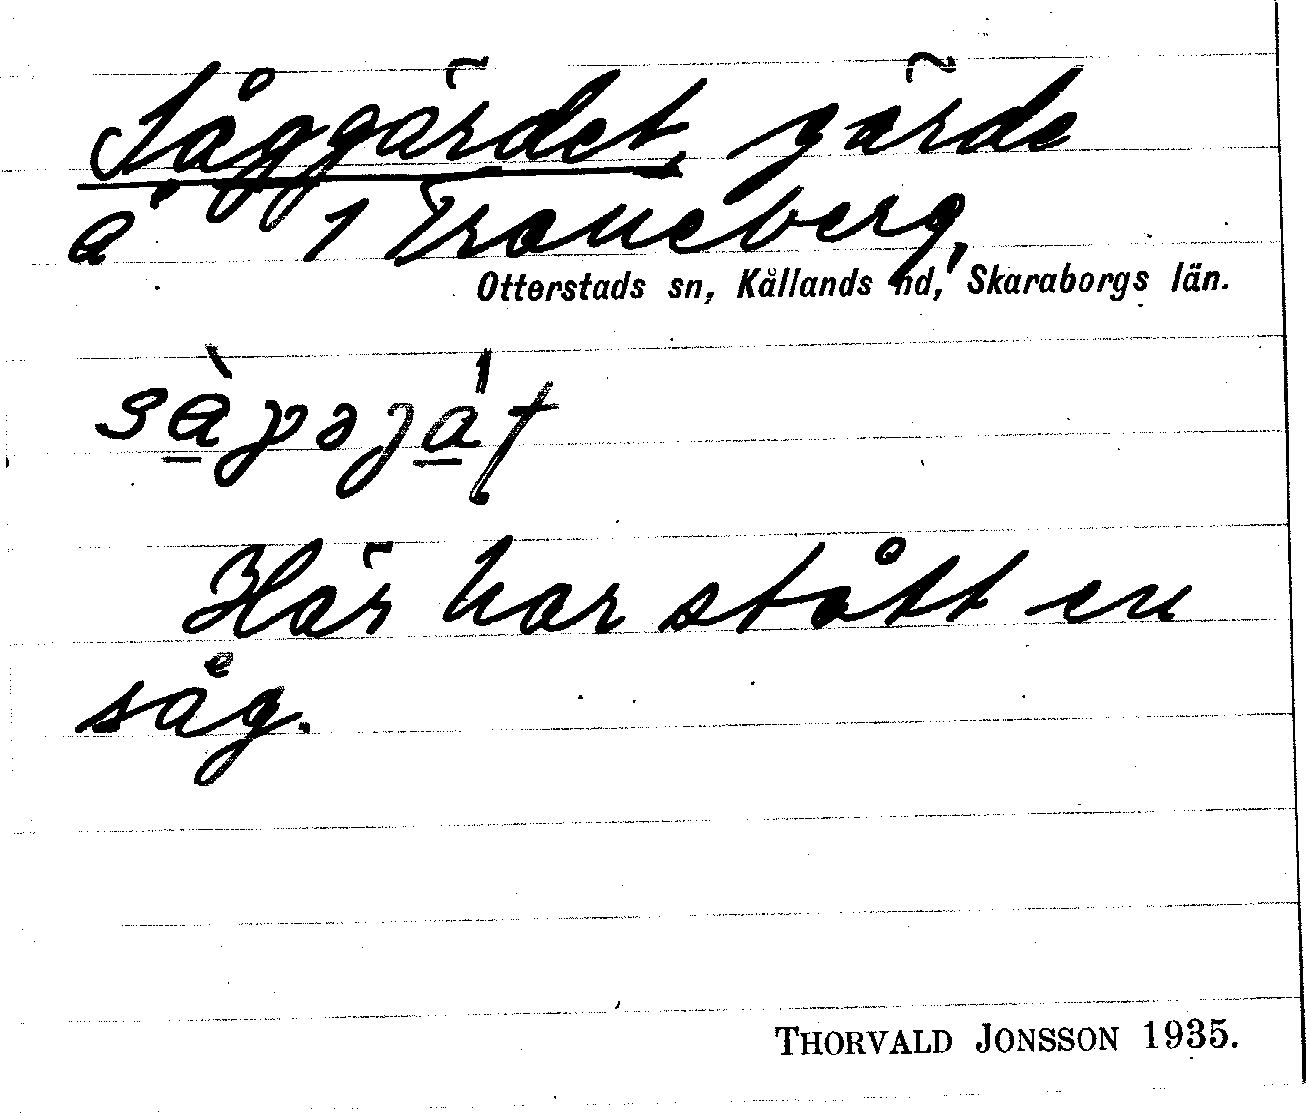 Såggärdet, gärde
å 1 Traneberg,
Otterstads sn, Kållands hd, Skaraborgs län.
Här har stått en
såg.
THORVALD JONSSON 1935.